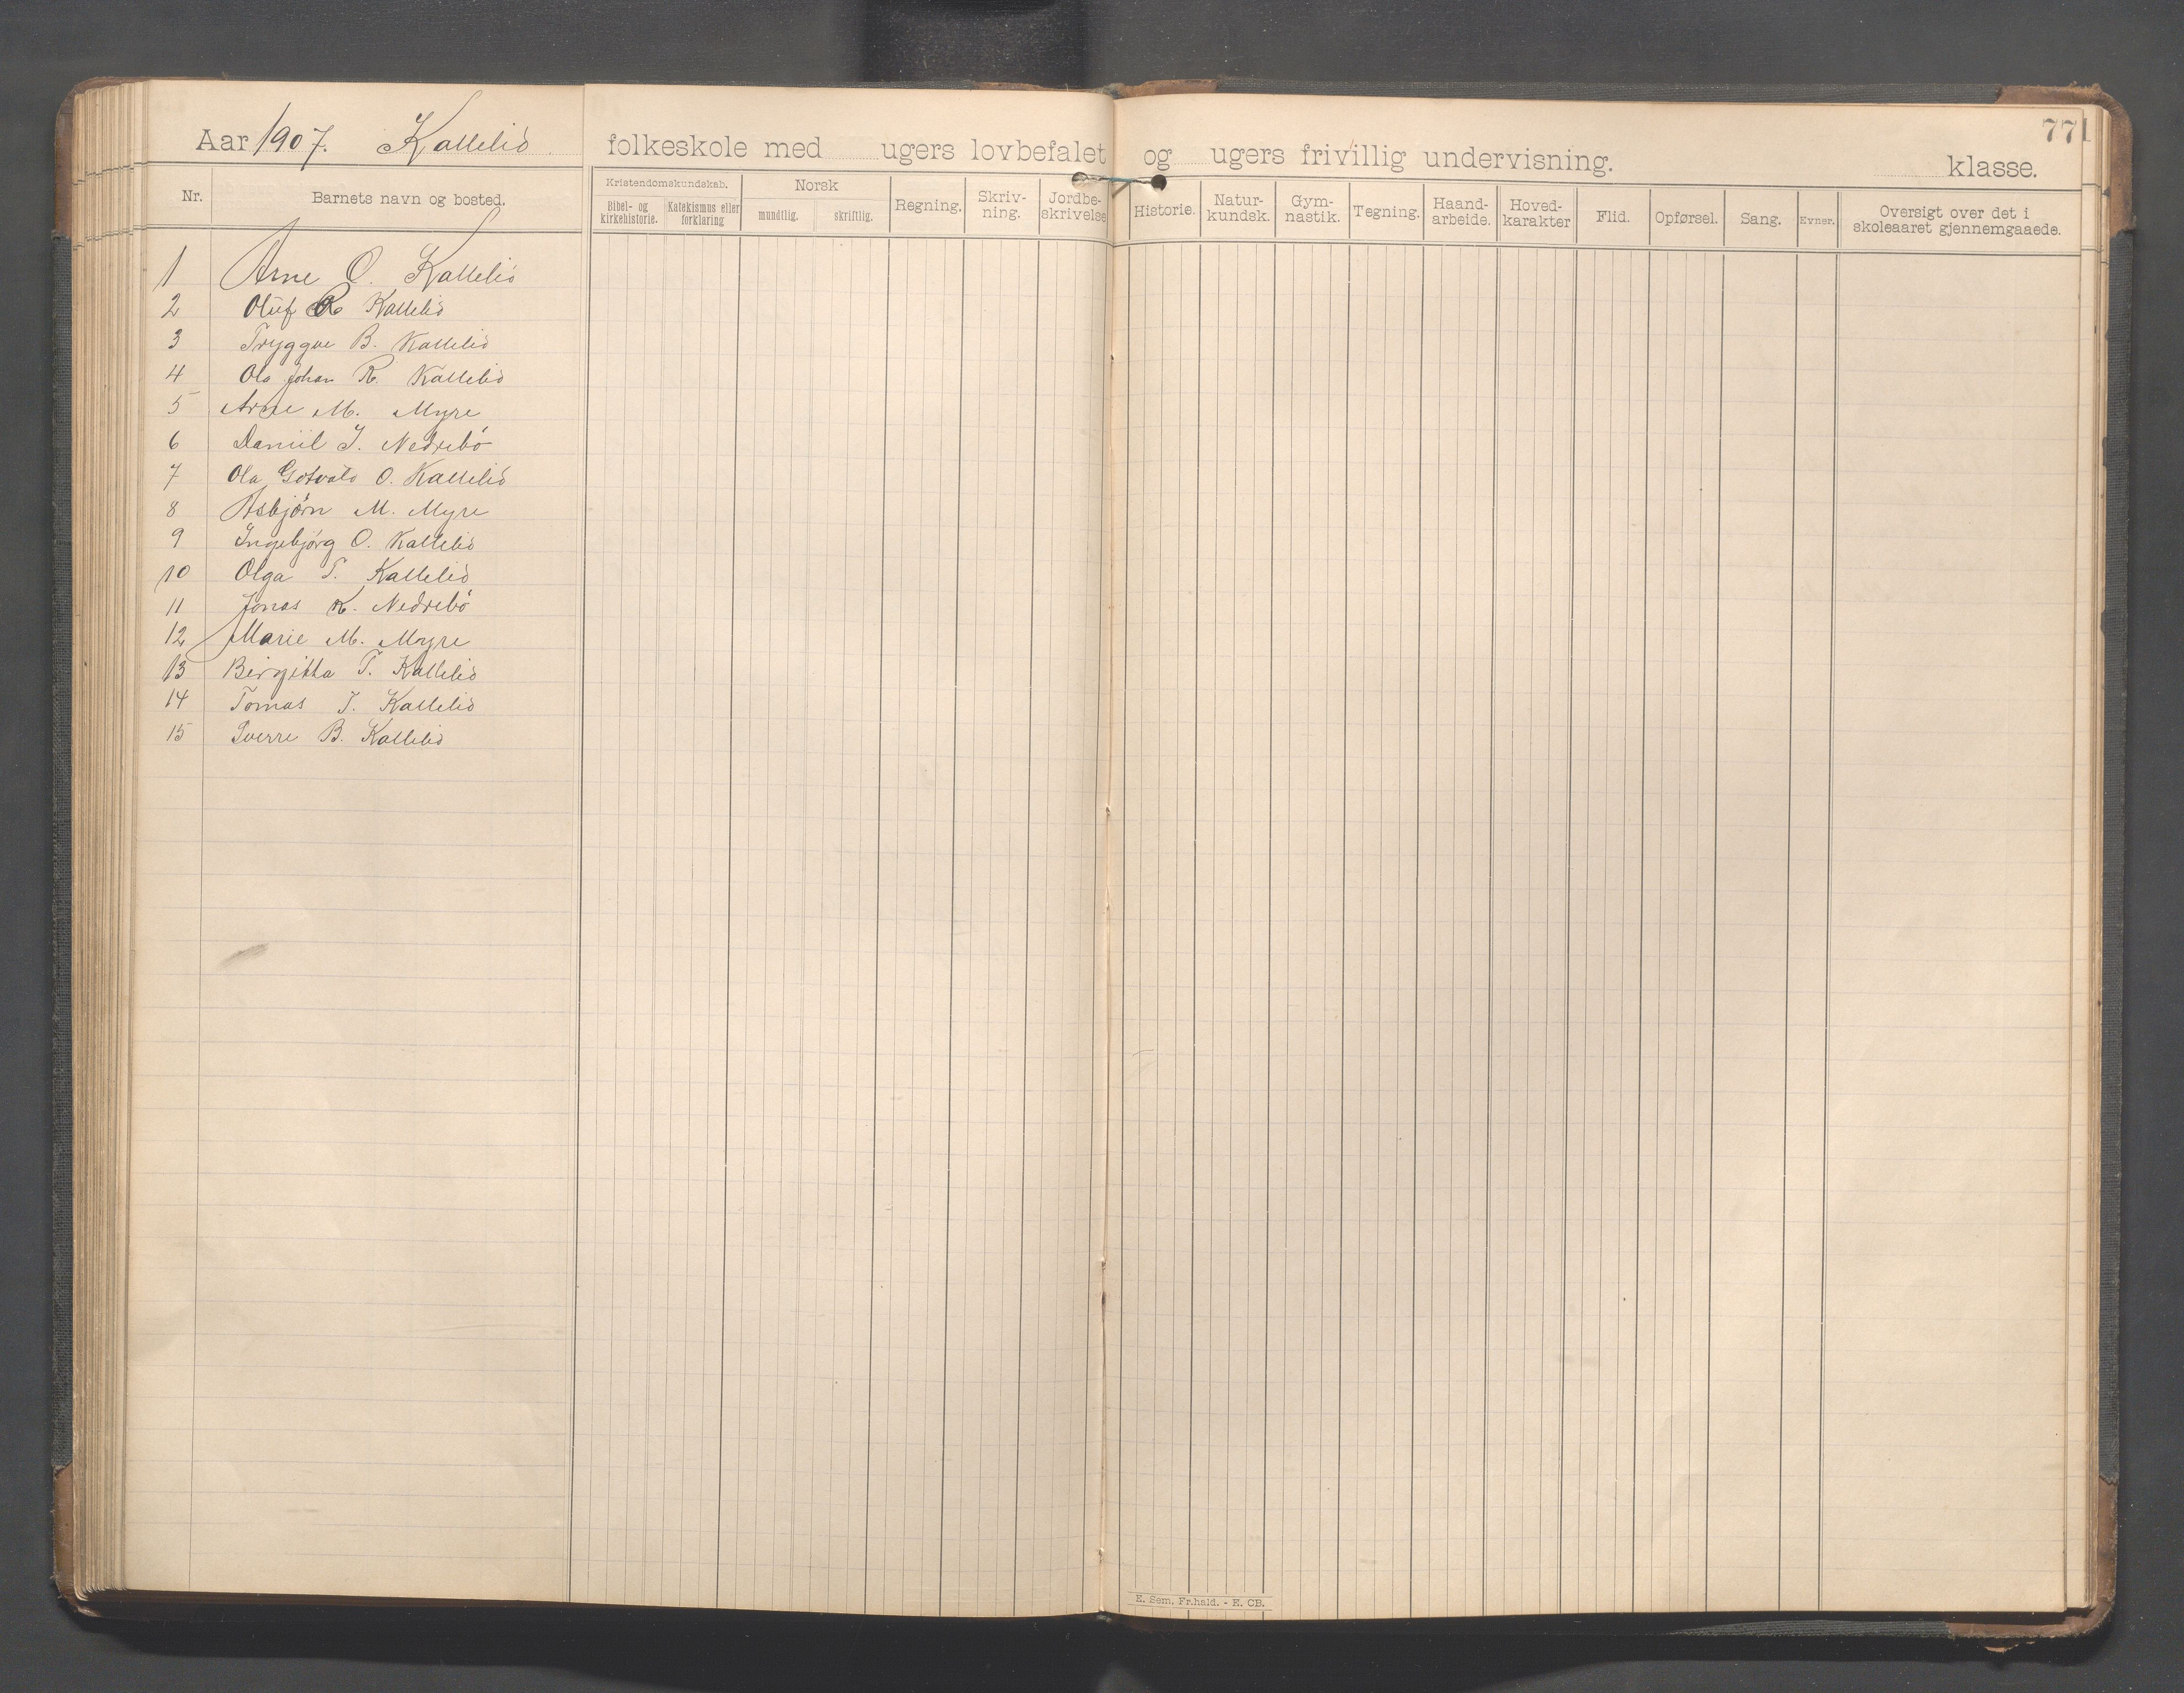 771
Aar 1907. Kallelid folkeskole med ugers lovbefalet og ugers frivillig undervisning. klasse.
Nr. Barnets navn og bosted. Kristendomskundskab. Bibel- og kirkehistorie. Katekismus eller forklaring Norsk mundtlig. skriftlig. Regning. Skriv-ning. Jordbe-skrivelse Historie. Natur-kundsk. Gym-nastik. Tegning. Haand-arbeide. Hoved-karakter Flid. Opførsel. Sang. Evner. Oversigt over det i skoleaaret gjennemgaaede.
1 Arne O. Kallelid
2 Oluf R Kallelid
3 Tryggve B. Kallelid
4 Ola Johan R. Kallelid
5 Arne M. Myre
6 Daniil I. Nedrebö
7 Ola Gotvald O. Kallelid
8 Asbjörn M. Myre
9 Ingebjörg O. Kallelid
10 Olga T. Kallelid
11 Jonas K. Nedrebö
12 Marie M. Myre
13 Birgitta T. Kallelid
14 Tomas I. Kallelid
15 Sverre B. Kallelid
E. Sem, Fr.hald. - E. CB.